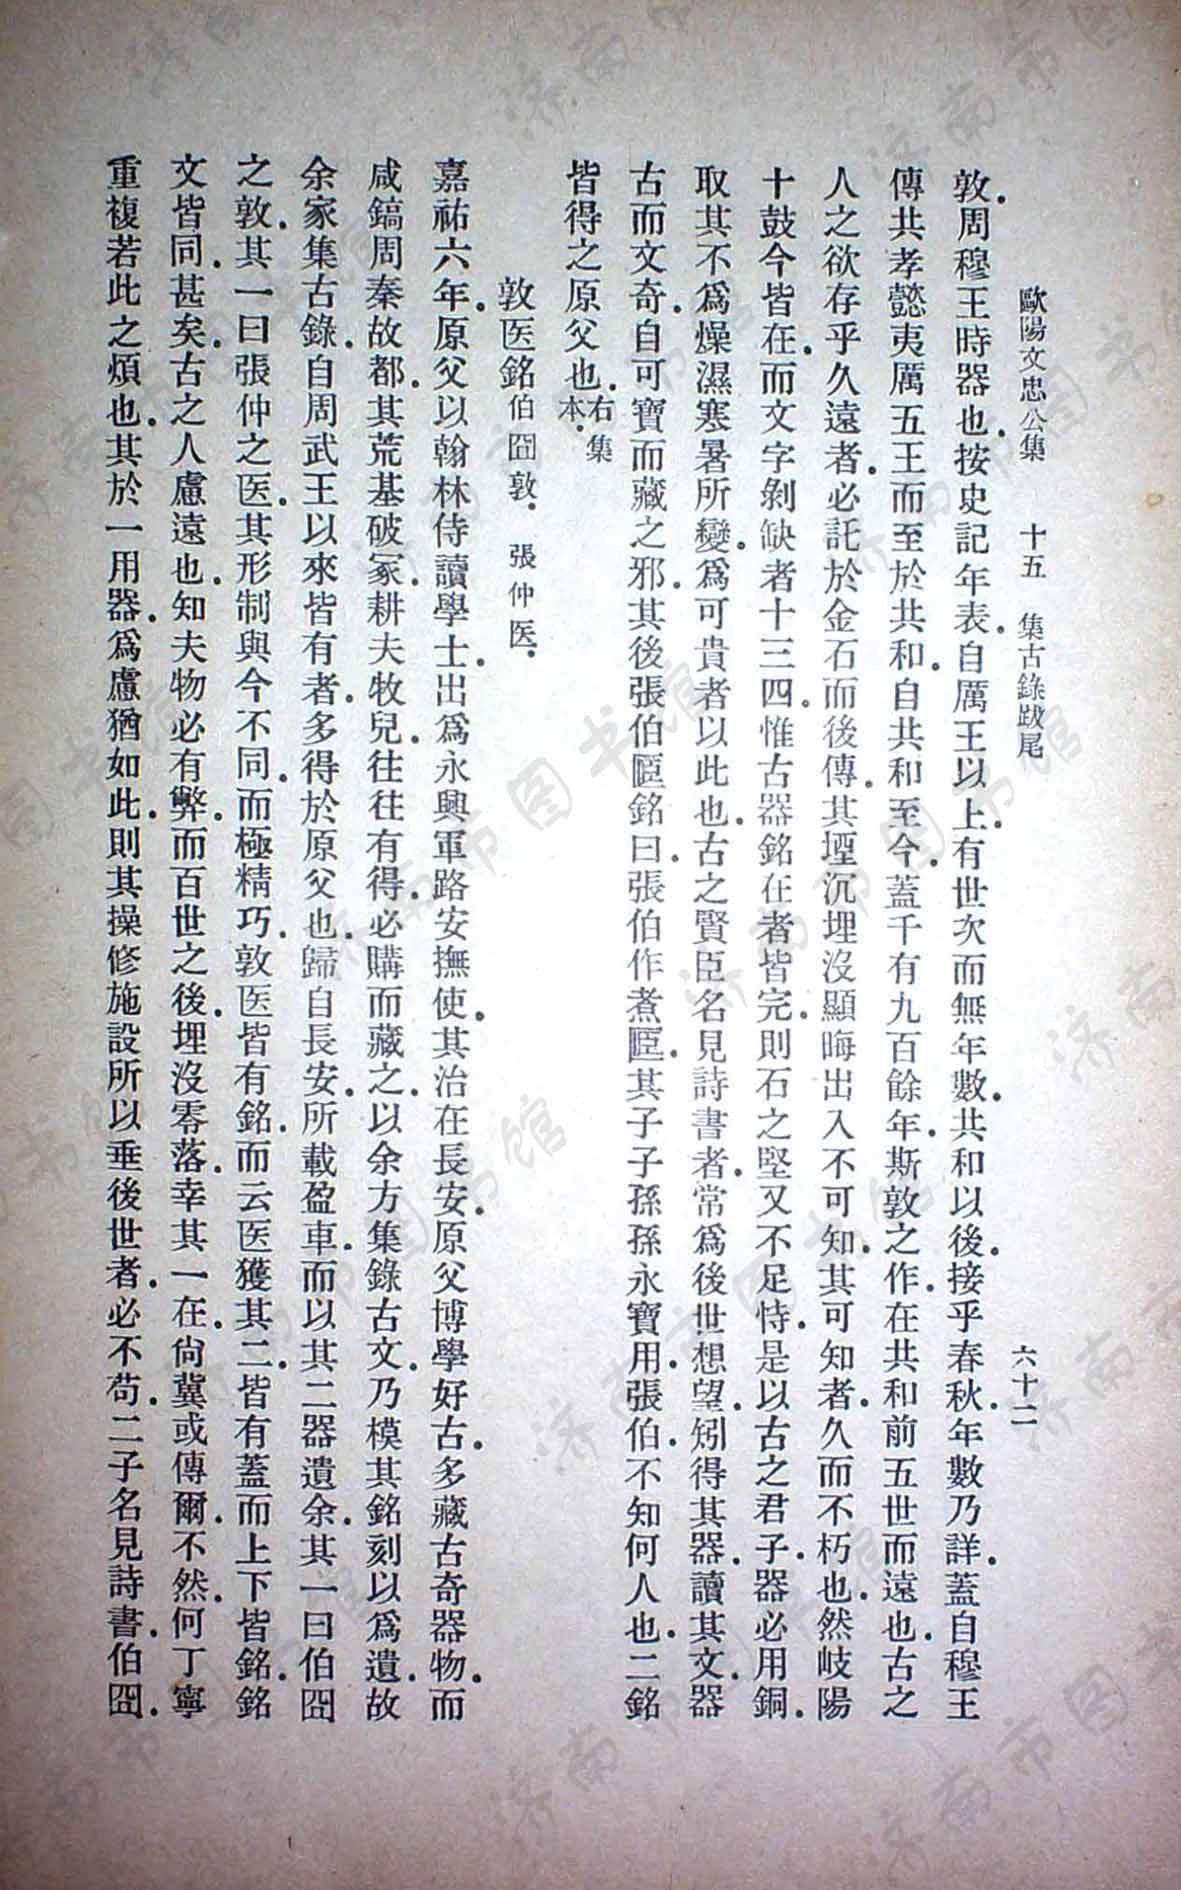 歐陽文忠公集 十五 集古錄跋尾 六十二
敦.周穆王時器也.按史記年表.自厲王以上.有世次而無年數.共和以後.接乎春秋.年數乃詳.蓋自穆王
傳共孝懿夷厲五王而至於共和.自共和至今.蓋千有九百餘年.斯敦之作.在共和前五世而遠也.古之
人之欲存乎久遠者.必託於金石而後傳.其堙沉埋沒顯晦出入不可知.其可知者.久而不朽也.然岐陽
十鼓今皆在.而文字剝缺者十三四.惟古器銘在者皆完.則石之堅又不足恃.是以古之君子.器必用銅.
取其不爲燥濕寒暑所變.爲可貴者以此也.古之賢臣名見詩書者.常爲後世想望.矧得其器.讀其文.器
古而文奇.自可寶而藏之邪.其後張伯㔶銘曰.張伯作煮㔶.其子子孫孫永寶用.張伯.不知何人也.二銘
皆得之原父也.右集本.
敦医銘 伯冏敦. 張仲医.
嘉祐六年.原父以翰林侍讀學士.出爲永興軍路安撫使.其治在長安.原父博學好古.多藏古奇器物.而
咸鎬周秦故都.其荒基破冢.耕夫牧兒.往往有得.必購而藏之.以余方集錄古文.乃模其銘刻以爲遺.故
余家集古錄.自周武王以來皆有者.多得於原父也.歸自長安.所載盈車.而以其二器遺余.其一曰伯冏
之敦.其一曰張仲之医.其形制與今不同.而極精巧.敦医皆有銘.而云医獲其二.皆有蓋而上下皆銘.銘
文皆同.甚矣.古之人慮遠也.知夫物必有弊.而百世之後.埋沒零落.幸其一在.尙冀或傳爾.不然.何丁寧
重複若此之煩也.其於一用器.爲慮猶如此.則其操修施設.所以垂後世者.必不苟.二子名見詩書.伯冏.